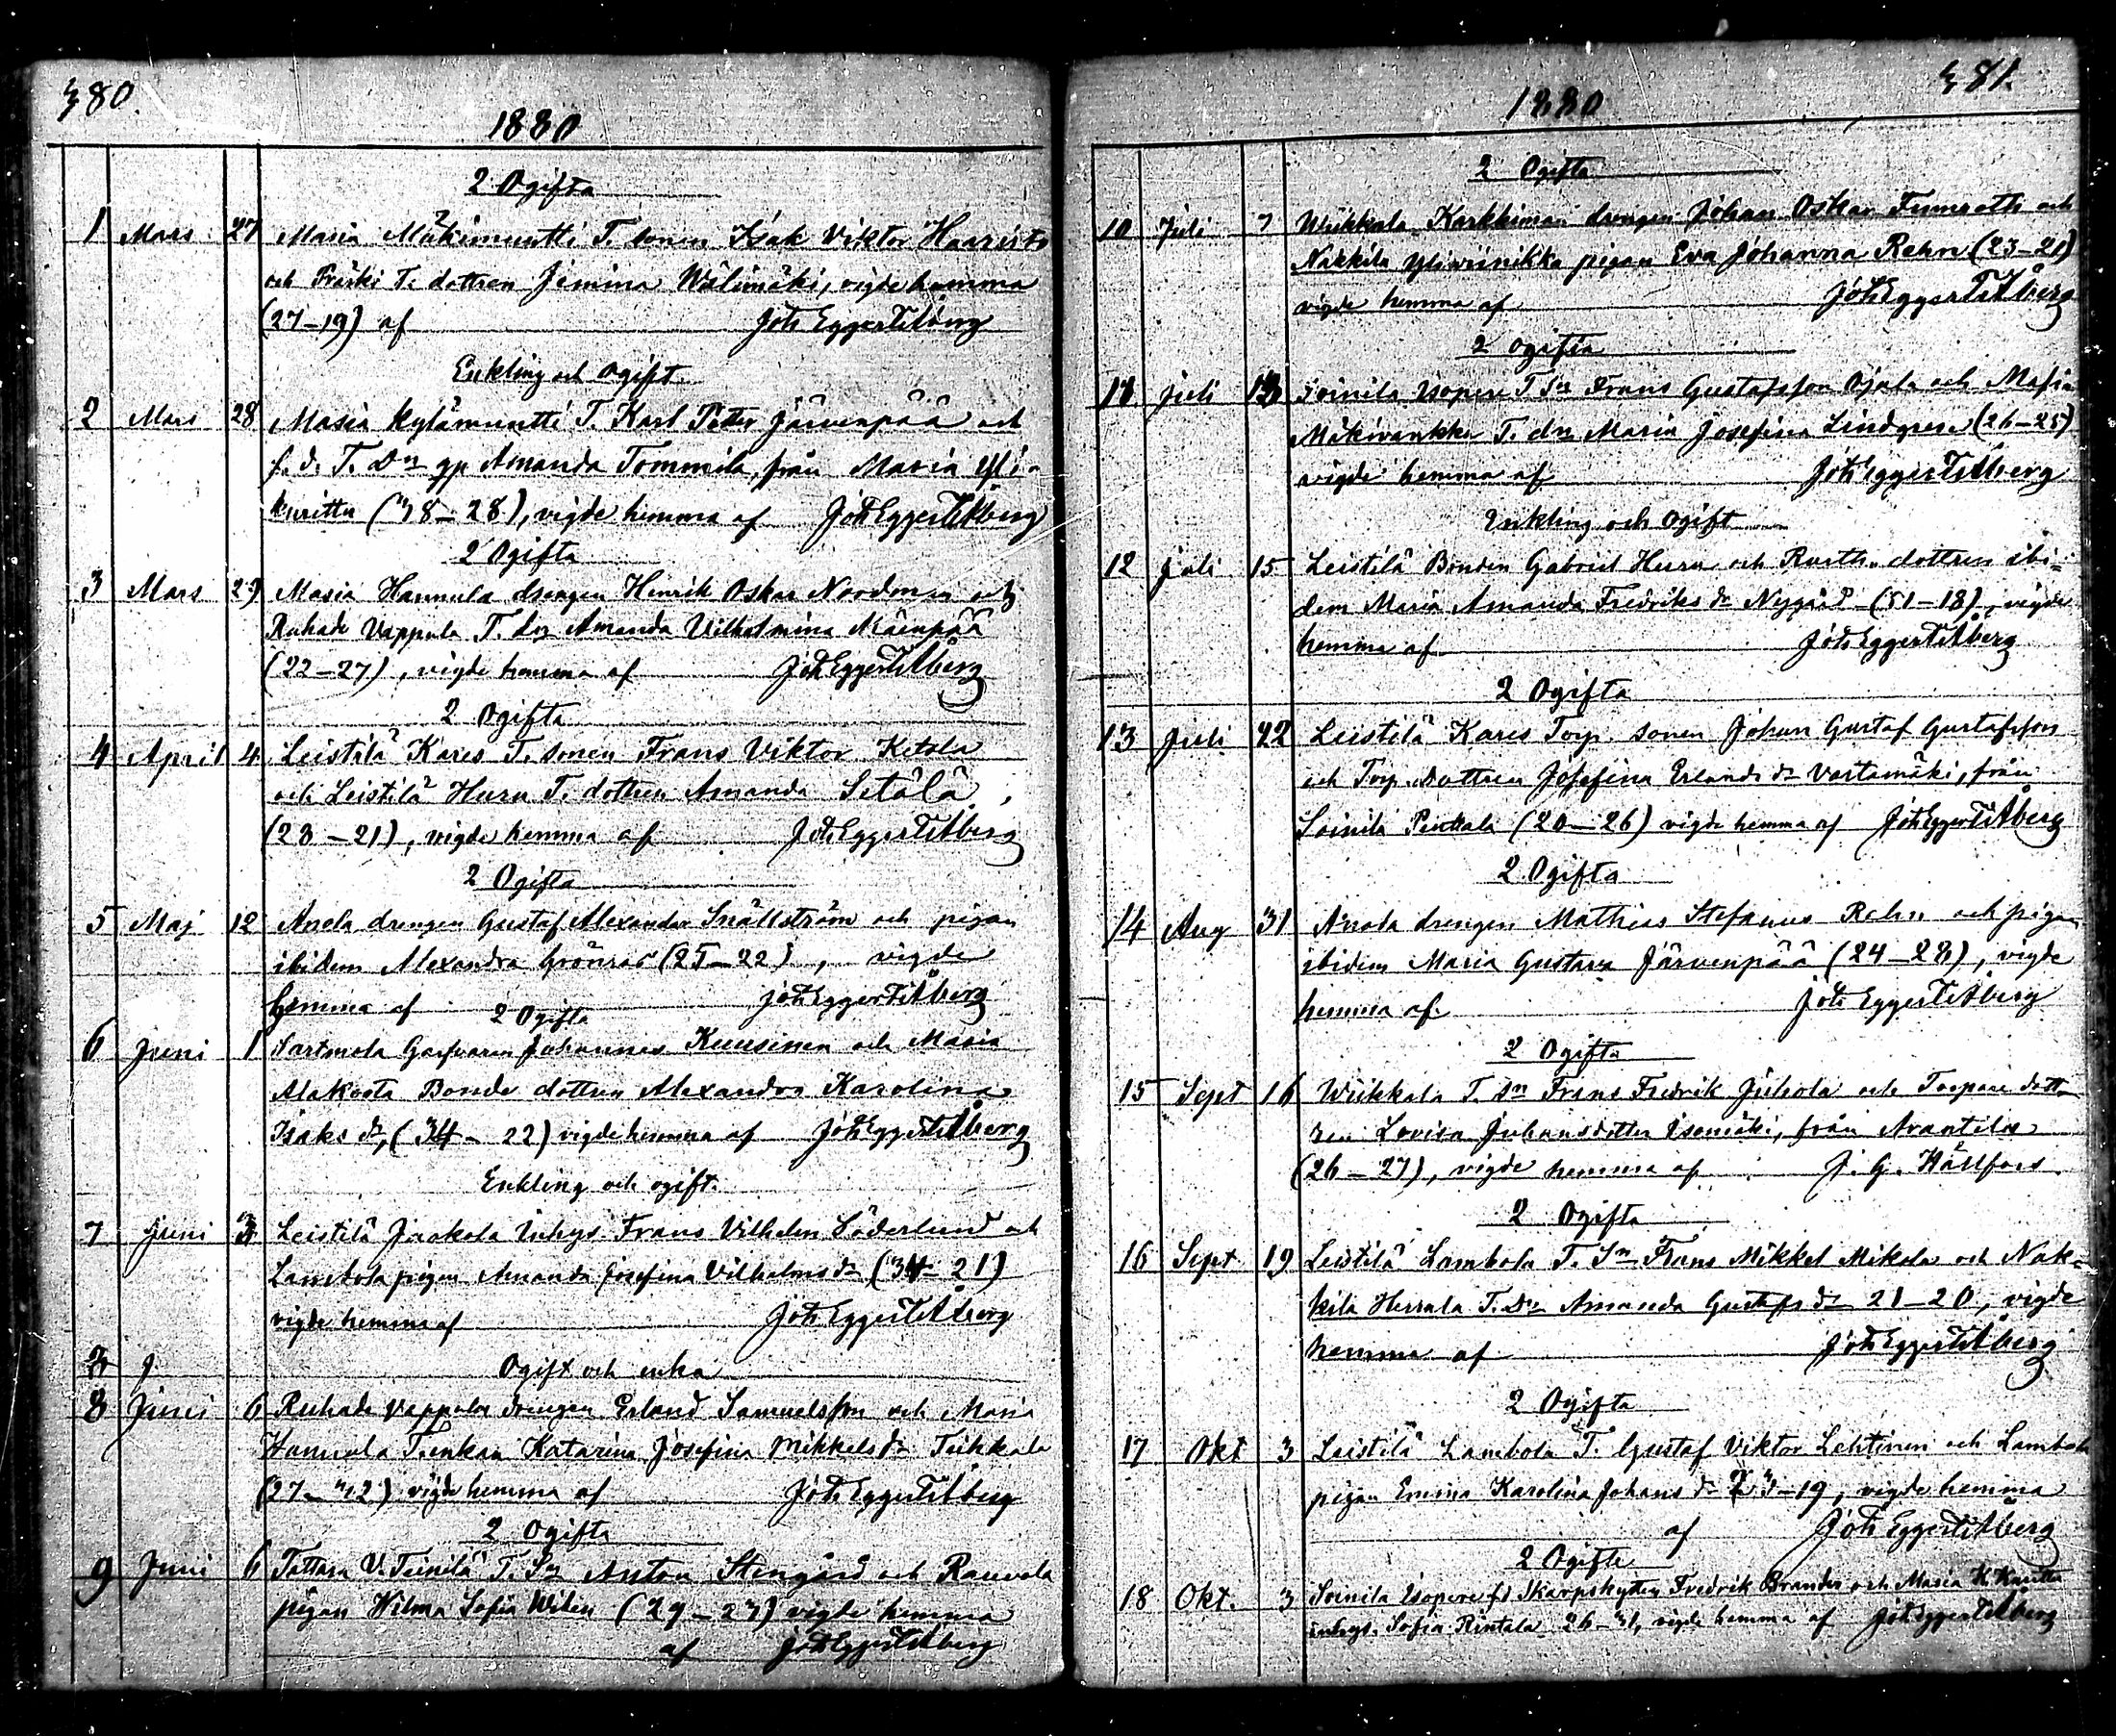 380.
1880
2 Ogifta
1 Mars 27 Masia Mäkimuntti T. sonen Isak Viktor Haaristo
och Fräski T. dottren Jemina Wälimäki, vigde hemma
(27-19) af Joh Eggert Tilberg
Enkling och Ogift
2 Mars 28 Masia Kylämuntti T. Karl Petter Järvenpää och
f. d. T. Dn gp Amanda Tommila, från Masia Yli-
kuritto (38-28), vigde hemma af Joh Eggert Tilberg
2 Ogifta
3 Mars 29 Masia Hannula drengen Henrik Oskar Nordman och
Ruhade Vappula T. dn Amanda Vilhelmina Mäenpää
(22-27), vigde hemma af Joh Eggert Tilberg
2 Ogifta
4 April 4 Leistilä Kares T. sonen Frans Viktor Ketola
och Leistilä Huru T. dottren Amanda Setälä,
(23-21), vigde hemma af Joh Eggert Tilberg
2 Ogifta
5 Maj 12 Anola drengen Gustaf Alexander Snällström och pigan
ibidem Alexandra Grönroos (25-22), vigde
hemma af Joh Eggert Tilberg
2 Ogifta
6 Juni 1 Johannes Kuusinen och Masia
Alakosta Bonde dottren Alexandra Karolina
Isaks dr, (34-22) vigde hemma af Joh Eggert Tilberg
Enkling och ogift.
7 Juni 3 Leistilä Jaakola Inhys. Frans Vilhelm Söderlund och
Lambola pigan Amanda Josefina Vilhelms dr (34-21)
vigde hemma af Joh Eggert Tilberg
J.
Ogift och enka
8 Juni 6 Ruhade Vappula drengen Erland Samuelsson och Masia
Hannula T. enkan Katarina Josefina Mikkels dr Teikkala
(27-32) vigde hemma af Joh Eggert Tilberg
2 Ogifta
9 Juni 6 Tattara V. Teinilä T. Sn Anton Stengård och Rauvola
pigan Hilma Sofia Widen (29-23) vigde hemma
af Joh Eggert Tilberg
381.
1880
2 Ogifta
10 Juli 7 Wiikkala Karhiman drengen Johan Oskar Funroth och
Nakkila Yliviinikka pigan Eva Johanna Rehn (23-21)
vigde hemma af Joh Eggert Tilberg
2 Ogifta
11 Juli 13 Soinila Isopere T. Sn Frans Gustafsson Ojala och Masia
T. dn Maria Josefina Lindgren (26-25)
vigde hemma af Joh Eggert Tilberg
Enkling och Ogift
12 Juli 15 Leistilä Bonden Gabriel Huru och dottren ibi-
dem Maria Amanda Fredriks dr Nygård (51-18), vigde
hemma af Joh Eggert Tilberg
2 Ogifta
13 Juli 22 Leistilä Kares Torp. sonen Johan Gustaf Gustafsson
och Torp. Dottren Josefina Erlands dr Vartamäki, från
Soinila Penttala (20-26) vigde hemma af Joh Eggert Tilberg
2 Ogifta
14 Aug 31 Anola drengen Mathias Stefanus Rehn och pigan
ibidem Maria Gustava Järvenpää (24-28), vigde
hemma af. Joh Eggert Tilberg
2 Ogifta
15 Sept 16 Wiikkala T. Sn Frans Fredrik Juhola och Torpare dott-
ren Lovisa Juhansdotter Isomäki, från Arantila
(26-27), vigde hemma af J. G. Hällfors
2 Ogifta
16 Sept 19 Leistilä Lambola T. Sn Frans Mikkel Mikola och Nak-
kila Herrala T. Dn Amanda Gustafs dr 21-20, vigde
hemma af Joh Eggert Tilberg
2 Ogifta
17 Okt 3 Leistilä Lambola T. Gustaf Viktor Lehtinen och Lambola
pigan Emina Karolina Johans dr 23-19, vigde hemma
af Joh Eggert Tilberg
2 Ogifta
18 Okt. 3 Soinila Isopere fd Skarpskytten Fredrik Brander och Masia
inhys. Sofia Rintala 26-31, vigde hemma af Joh Eggert Tilberg